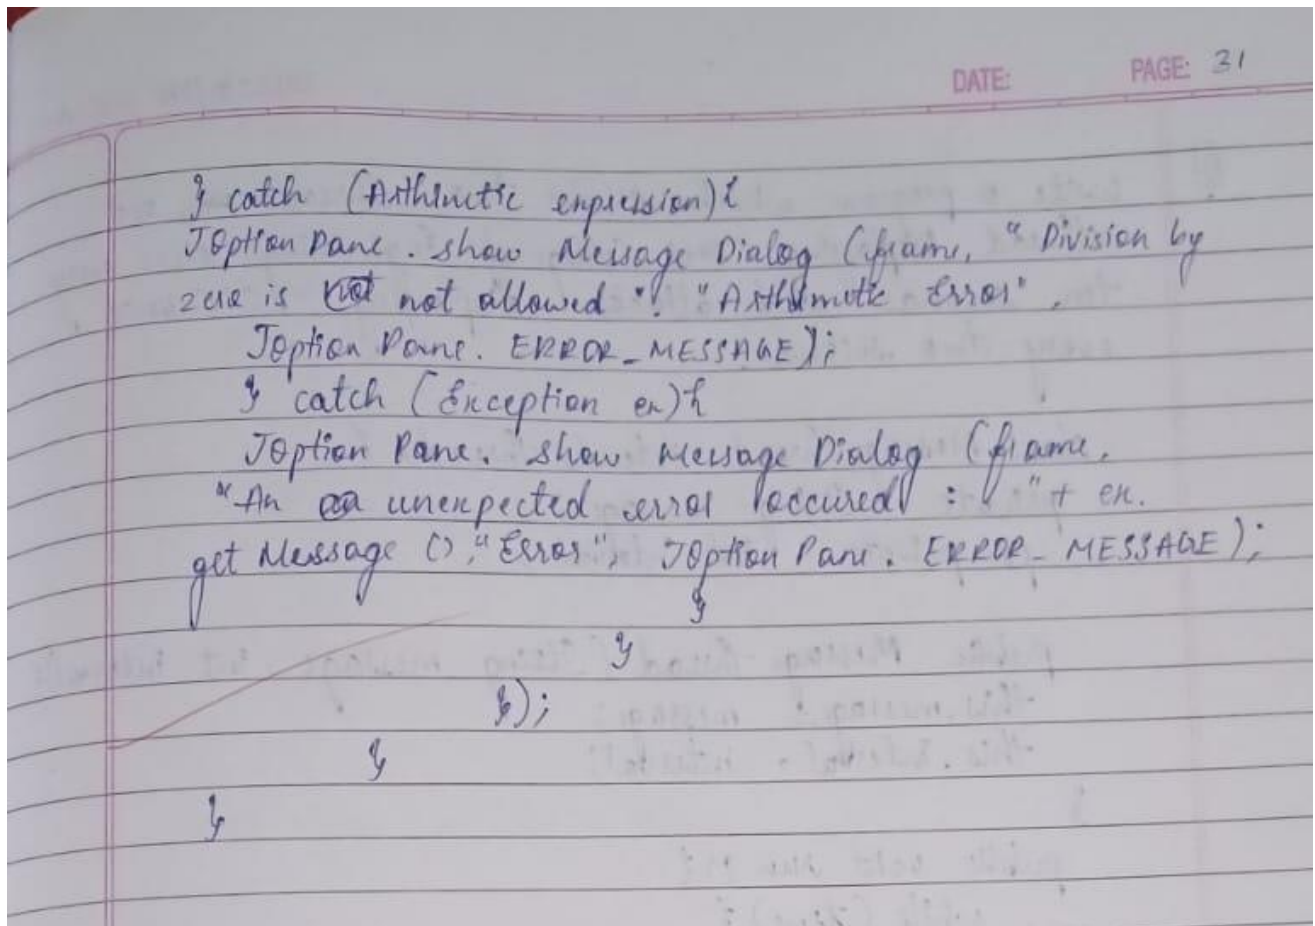 DATE: PAGE: 31
} catch (Arthimetic expression){
JOption Pane . show Message Dialog (frame, "Division by
zero is not allowed ", "Arthimetic Error",
JOption Pane. ERROR_MESSAGE);
} catch (Exception ex){
JOption Pane. show Message Dialog (frame,
"An unexpected error occured : " + ex.
get Message (), "Error", JOption Pane. ERROR_MESSAGE);
}
}
});
}
}